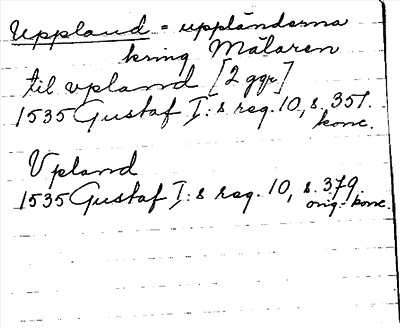 Uppland = uppländerna
kring Mälaren
til vpland [2 ggr]
1535 Gustaf I:s reg. 10, s. 351.
konc.
Vpland
1535 Gustaf I:s reg. 10, s. 379.
orig. konc.